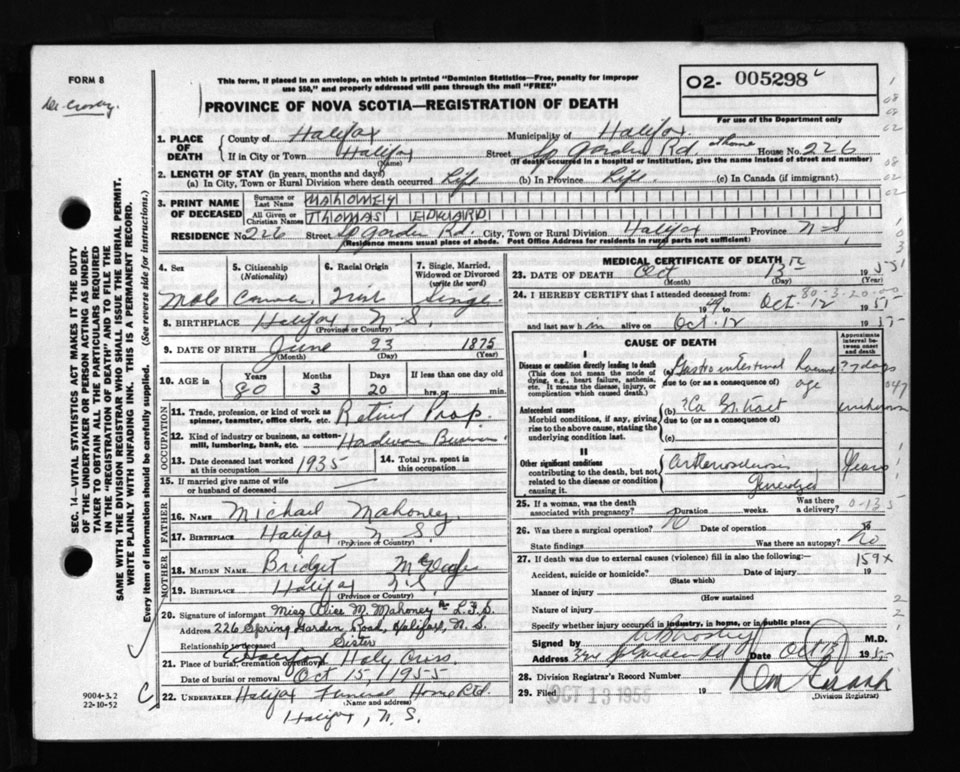 FORM 8
This form, if placed in an envelope, on which is printed "Dominion Statistics—Free, penalty for improper
use $50," and properly addressed will pass through the mail "FREE"
O2- 005298
For use of the Department only
PROVINCE OF NOVA SCOTIA—REGISTRATION OF DEATH
1. PLACE OF DEATH
County of Halifax Municipality of Halifax
If in City or Town Halifax Street Sp Garden Rd. at home House No. 226
(Name) (If death occurred in a hospital or institution, give the name instead of street and number)
2. LENGTH OF STAY (in years, months and days)
(a) In City, Town or Rural Division where death occurred Life (b) In Province Life. (c) In Canada (if immigrant)
3. PRINT NAME OF DECEASED
Surname or Last Name MAHONEY
All Given or Christian Names THOMAS EDWARD
RESIDENCE No. 226 Street Sp Garden Rd. City, Town or Rural Division Halifax Province N-S.
(Residence means usual place of abode. Post Office Address for residents in rural parts not sufficient)
4. Sex
5. Citizenship (Nationality)
6. Racial Origin
7. Single, Married, Widowed or Divorced (write the word)
Male Irish Single
8. BIRTHPLACE Halifax N.S.
(Province or Country)
9. DATE OF BIRTH June 23 1875
(Month) (Day) (Year)
10. AGE in Years Months Days If less than one day old
80 3 20 hrs. or min.
OCCUPATION
11. Trade, profession, or kind of work as spinner, teamster, office clerk, etc. Retired Prop.
12. Kind of industry or business, as cotton-mill, lumbering, bank, etc. Hardware Business
13. Date deceased last worked at this occupation 1935
14. Total yrs. spent in this occupation
15. If married give name of wife or husband of deceased
FATHER
16. NAME Michael Mahoney
17. BIRTHPLACE Halifax N.S.
(Province or Country)
MOTHER
18. MAIDEN NAME Bridget
19. BIRTHPLACE Halifax N.S.
(Province or Country)
20. Signature of informant Miss Alice M. Mahoney
Address 226 Spring Garden Road, Halifax, N.S.
Relationship to deceased Sister
21. Place of burial, cremation or removal Halifax Holy Cross.
Date of burial or removal Oct 15, 1955
22. UNDERTAKER Halifax Funeral Home Ltd.
(Name and address)
Halifax, N.S.
MEDICAL CERTIFICATE OF DEATH
23. DATE OF DEATH Oct 13th 1955
(Month) (Day)
80-3-20-00
24. I HEREBY CERTIFY that I attended deceased from: 49 to Oct. 12 1955
and last saw him alive on Oct. 12 1955
CAUSE OF DEATH
Approximate interval between onset and death
I
Disease or condition directly leading to death
(This does not mean the mode of dying, e.g., heart failure, asthenia, etc. It means the disease, injury, or complication which caused death.)
(a) Gastro intestinal ? 7 days
due to (or as a consequence of)
Antecedent causes
Morbid conditions, if any, giving rise to the above cause, stating the underlying condition last.
(b) ? Ca G.I. tract unknown
due to (or as a consequence of)
(c)
II
Other significant conditions
contributing to the death, but not related to the disease or condition causing it.
Arteriosclerosis Years
Generalized
25. If a woman, was the death associated with pregnancy? Duration weeks. Was there a delivery?
0-13
26. Was there a surgical operation? No Date of operation 19
State findings Was there an autopsy? No
27. If death was due to external causes (violence) fill in also the following:—
159x
Accident, suicide or homicide? Date of injury 19
(State which)
Manner of injury
(How sustained
Nature of injury
Specify whether injury occurred in industry, in home, or in public place
Signed by M.D.
Address Date Oct 13 1955
28. Division Registrar's Record Number
29. Filed OCT 13 1955 19
(Division Registrar)
SEC. 14—VITAL STATISTICS ACT MAKES IT THE DUTY
OF THE UNDERTAKER OR PERSON ACTING AS UNDER-
TAKER TO OBTAIN ALL THE PARTICULARS REQUIRED
IN THE "REGISTRATION OF DEATH" AND TO FILE THE
SAME WITH THE DIVISION REGISTRAR WHO SHALL ISSUE THE BURIAL PERMIT.
WRITE PLAINLY WITH UNFADING INK. THIS IS A PERMANENT RECORD.
Every item of information should be carefully supplied. (See reverse side for instructions.)
9004-3.2
22-10-52